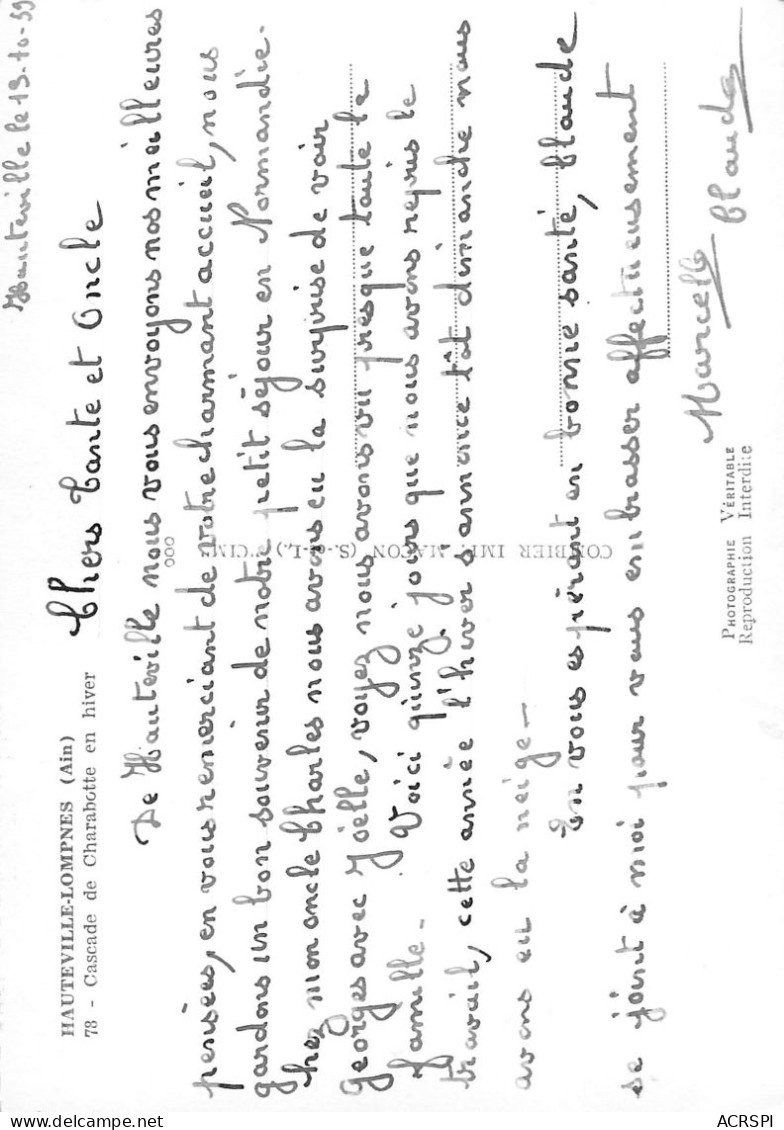 Hauteville le 13-10-59
HAUTEVILLE-LOMPNES (Ain)
78 - Cascade de Charabotte en hiver
Chers Tante et Oncle
De Hauteville nous vous envoyons nos meilleures
pensées, en vous remerciant de votre charmant accueil, nous
gardons un bon souvenir de notre petit séjour en Normandie.
Chez mon oncle Charles nous avons eu la surprise de voir
Georges avec Joëlle, voyez nous avons vu presque toute la
famille.
Voici quinze jours que nous avons repris le
travail, cette année l'hiver s'annonce tôt dimanche nous
avons eu la neige -
En vous espérant en bonne santé, Claude
se joint à moi pour vous embrasser affectueusement
Marcelle Claude
COMBIER IMP. MACON (S.-&-L.) "CIM"
PHOTOGRAPHIE VÉRITABLE
Reproduction Interdite
delcampe.net
ACRSPI